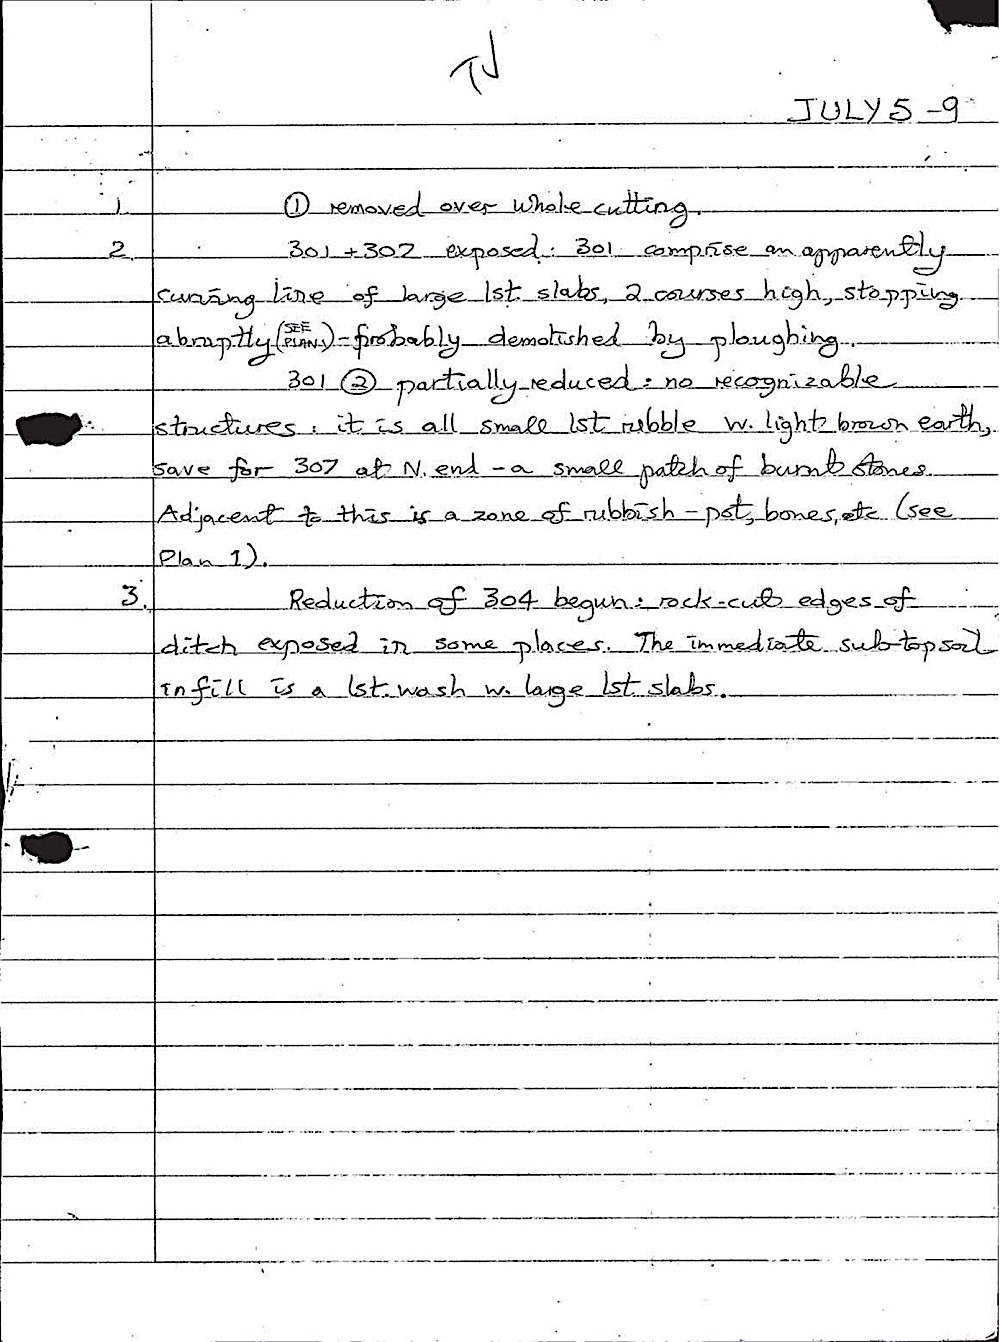 JULY 5-9
1. ① removed over whole cutting.
2. 301 + 302 exposed: 301 comprise an apparently
curving line of large lst. slabs, 2 courses high, stopping
abruptly (SEE PLAN 1) - probably demolished by ploughing.
301 ② partially reduced: no recognizable
structures: it is all small lst rubble w. light brown earth,
save for 307 at N. end - a small patch of burnt stones.
Adjacent to this is a zone of rubbish - pot, bones, etc (see
Plan 1).
3. Reduction of 304 begun: rock-cut edges of
ditch exposed in some places. The immediate sub-topsoil
infill is a lst. wash w. large lst slabs.